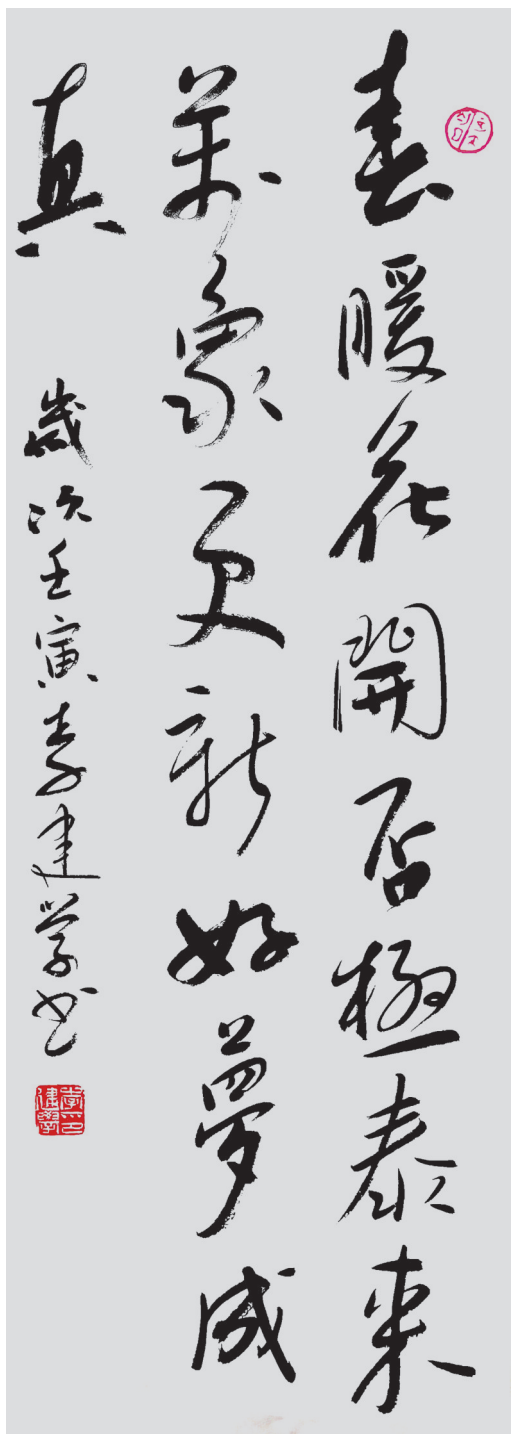 春暖花開否極泰來
萬象更新好夢成
真
歲次壬寅李建学书